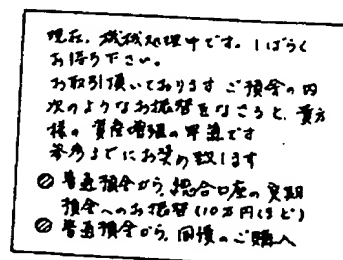 現在、機械処理中です。しばらく
お待ち下さい。
お取引頂いております ご預金の内
次のようなお振替をなさると、貴方
様の 資産増強の早道です
参考までにお奨め致します
◎ 普通預金から、総合口座の定期
預金へのお振替(10万円ほど)
◎ 普通預金から、国債のご購入